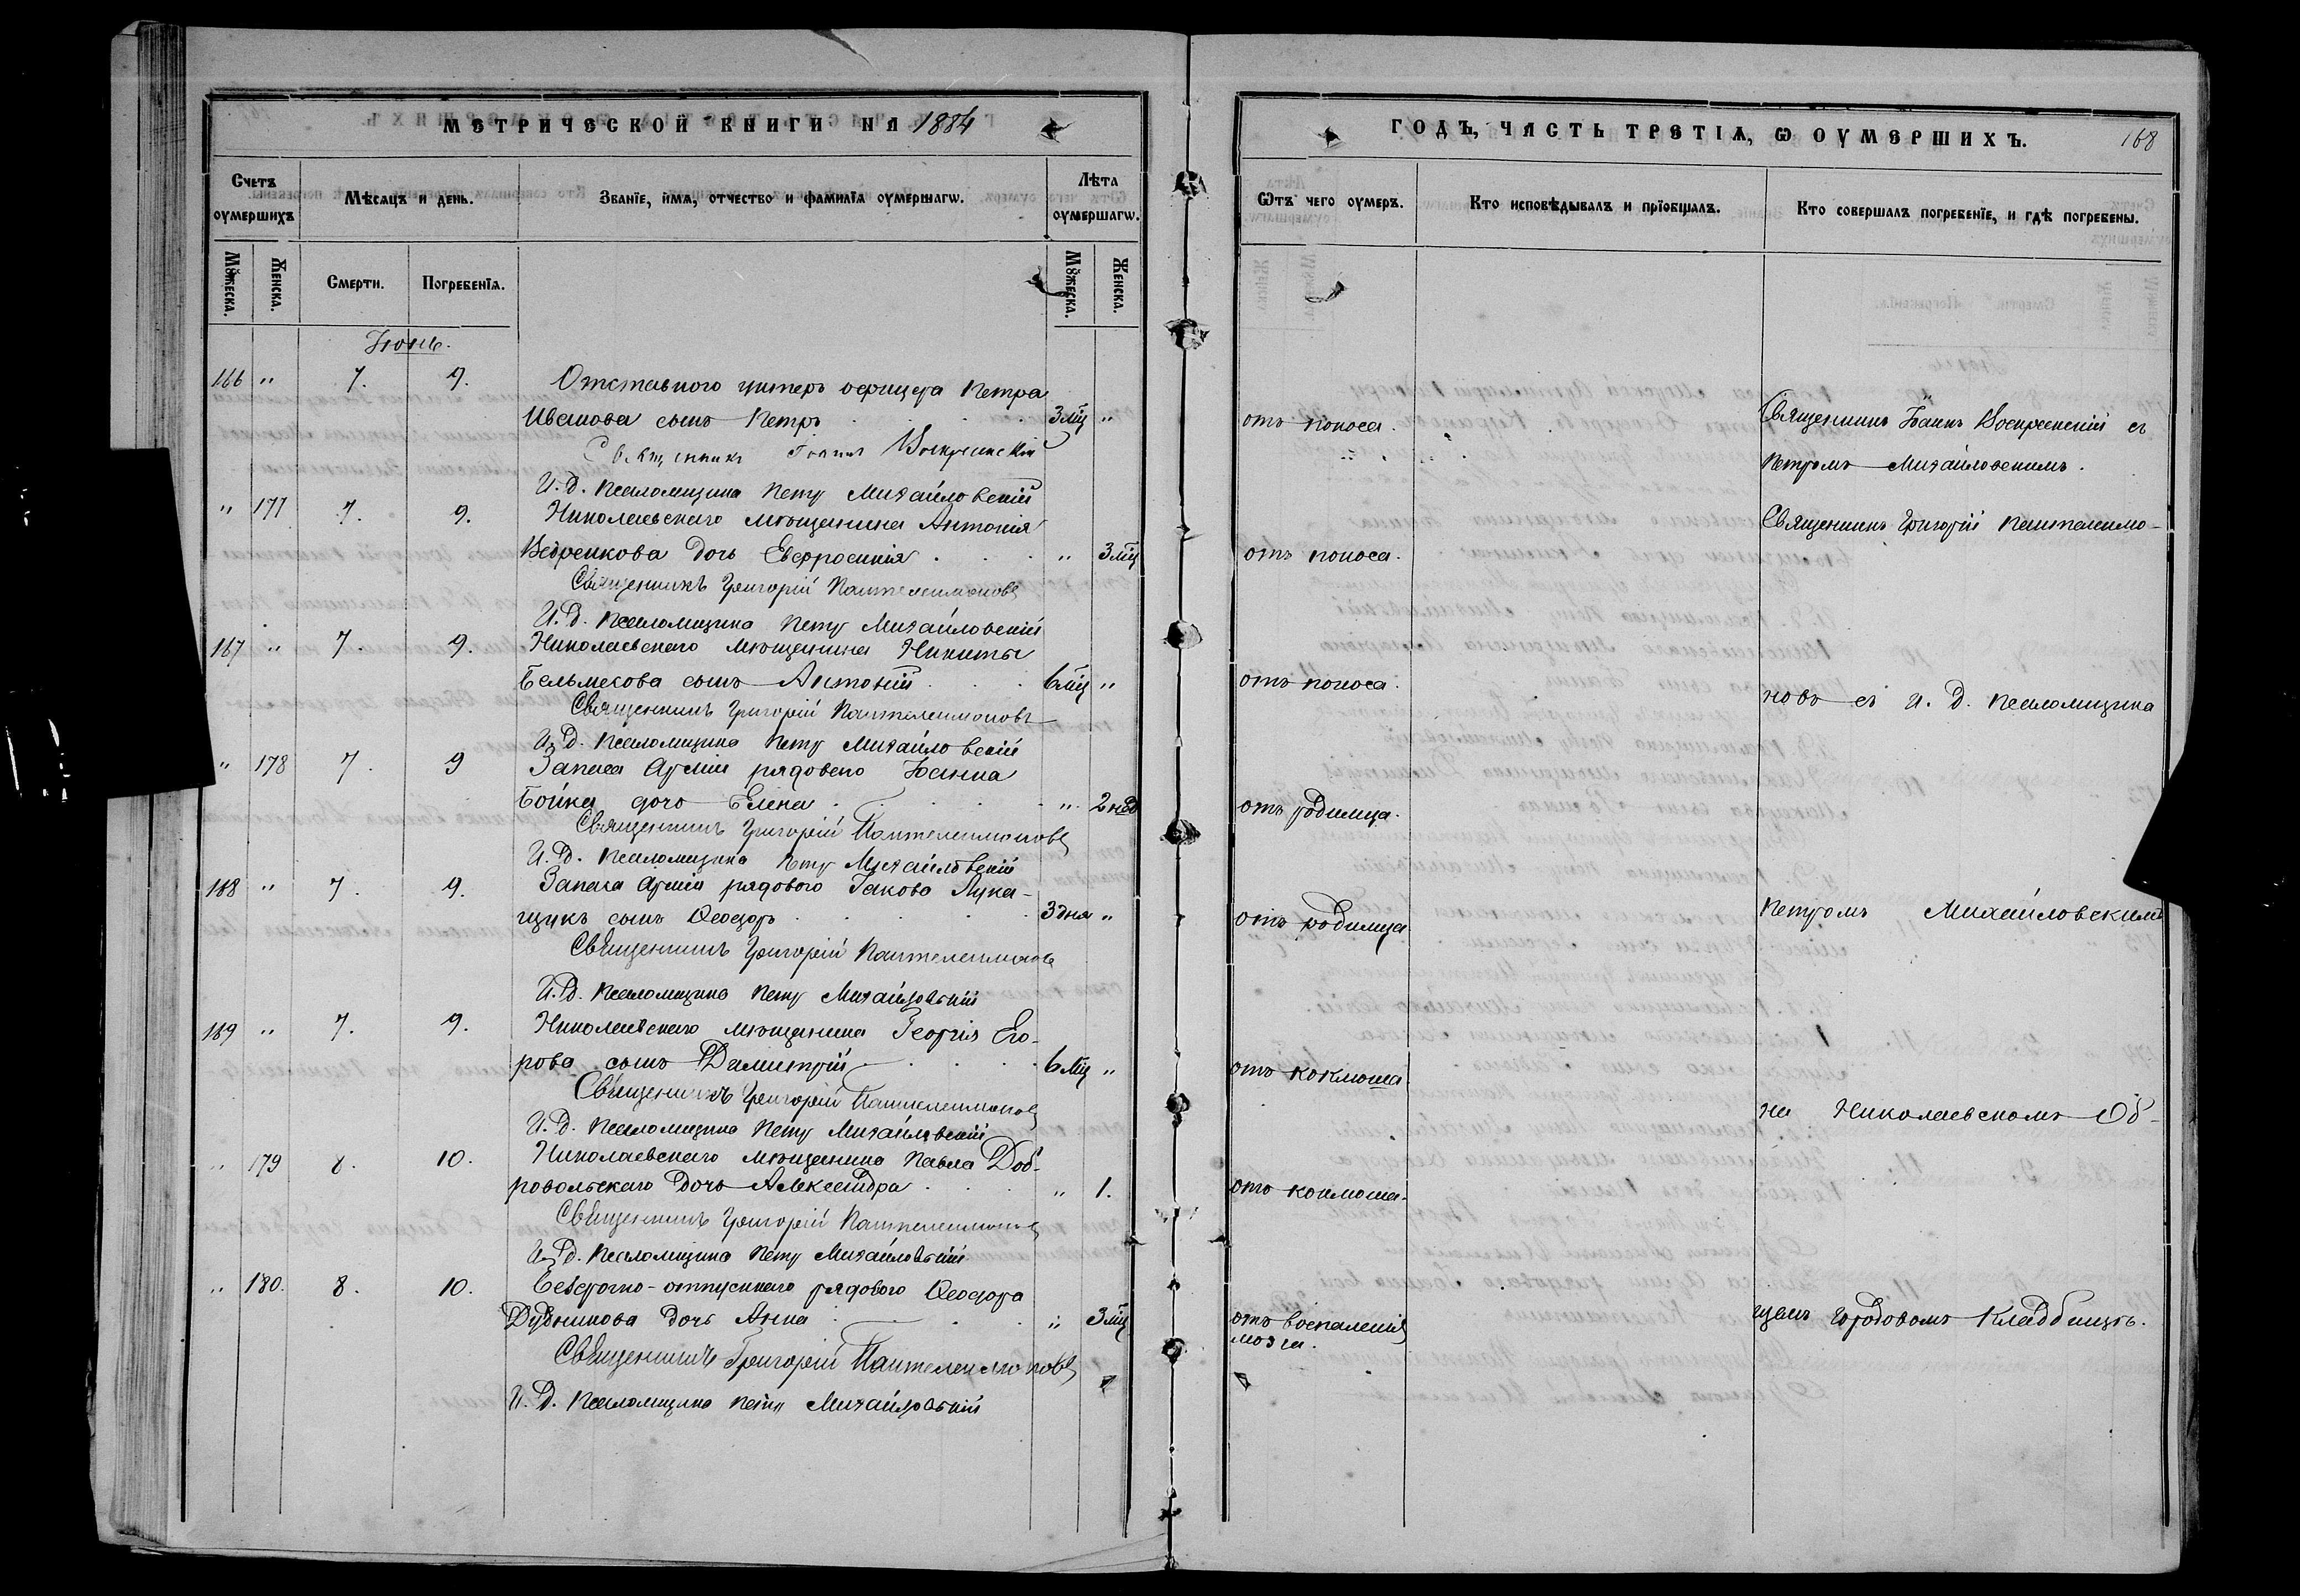 МЕТРИЧЕСКОЙ КНИГИ НА 1884
Счетъ оумершихъ
Мѣсяцъ и день.
Званїе, имя, отчество и фамилїа оумершагѡ.
Лѣта оумершагѡ.
Мꙋжеска.
Женска.
Смерти.
Погребенїя.
Мꙋжеска.
Женска.
Іюнь.
166 " 7. 9. Отставного унтеръ офицера Петра
Иванова сынъ Петръ 3 мц "
Священникъ Іоаннъ Воскресенскій
И. д. псаломщика Петръ Михайловскій
" 177 7. 9. Николаевскаго мѣщанина Антонія
дочь Евфросинія " 3 мц
Священникъ Григорій Пантелеимоновъ
И. д. псаломщика Петръ Михайловскій
167 " 7. 9. Николаевскаго мѣщанина Никиты
Бельмесова сынъ Антоній 6 мц "
Священникъ Григорій Пантелеимоновъ
И. д. псаломщика Петръ Михайловскій
" 178 7. 9 Запаса Арміи рядового Іоанна
Бойка дочь Елена " 2 нед
Священникъ Григорій Пантелеимоновъ
И. д. псаломщика Петръ Михайловскій
168 " 7. 9. Запаса Арміи рядового Іакова Лука-
щукъ сынъ Ѳеодоръ 3 дня "
Священникъ Григорій Пантелеимоновъ
И. д. псаломщика Петръ Михайловскій
169 " 7. 9. Николаевскаго мѣщанина Георгія Его-
рова сынъ Димитрій 6 мц "
Священникъ Григорій Пантелеимоновъ
И. д. псаломщика Петръ Михайловскій
" 179 8. 10. Николаевскаго мѣщанина Павла Доб-
ровольскаго дочь Александра " 1.
Священникъ Григорій Пантелеимоновъ
И. д. псаломщика Петръ Михайловскій
" 180. 8. 10. Безсрочно-отпускнаго рядового Ѳеодора
Дудникова дочь Анна " 3 мц
Священникъ Григорій Пантелеимоновъ
И. д. псаломщика Петръ Михайловскій
ГОДЪ, ЧАСТЬ ТРЕТІѦ, Ѡ ОУМЕРШИХЪ.
168
Ѿтъ чего оумеръ.
Кто исповѣдывалъ и прїобщалъ.
Кто совершалъ погребенїе, и гдѣ погребены.
отъ поноса.
Священникъ Іоаннъ Воскресенскій съ
Петромъ Михайловскимъ.
Священникъ Григорій Пантелеимо-
отъ поноса.
отъ поноса.
новъ съ И. д. псаломщика
отъ родимца.
отъ родимца
Петромъ Михайловскимъ
отъ коклюша.
на Николаевскомъ Об-
отъ коклюша.
отъ воспаленія
мозга.
щемъ городовомъ кладбищѣ.